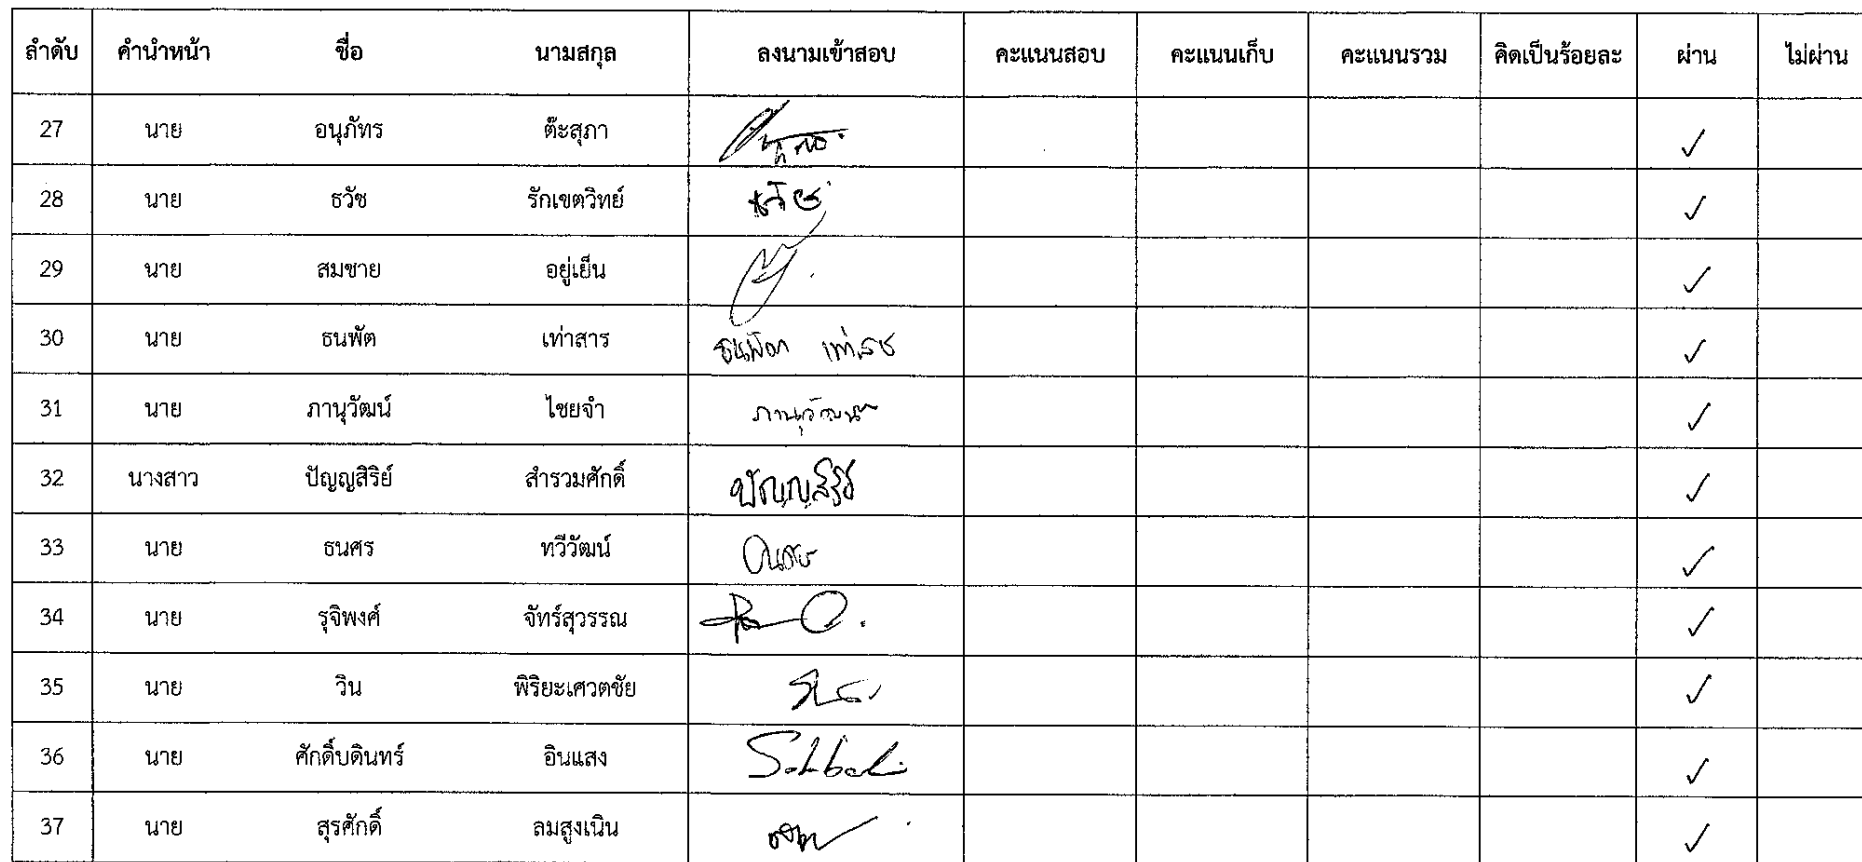 ลำดับ คำนำหน้า ชื่อ นามสกุล ลงนามเข้าสอบ คะแนนสอบ คะแนนเก็บ คะแนนรวม คิดเป็นร้อยละ ผ่าน ไม่ผ่าน
27 นาย อนุภัทร ต๊ะสุภา ✓
28 นาย ธวัช รักเขตวิทย์ ธวัช ✓
29 นาย สมชาย อยู่เย็น ✓
30 นาย ธนพัต เท่าสาร ธนพัต เท่าสาร ✓
31 นาย ภานุวัฒน์ ไชยจำ ภานุวัฒน์ ✓
32 นางสาว ปัญญสิริย์ สำรวมศักดิ์ ปัญญสิริย์ ✓
33 นาย ธนศร ทวีวัฒน์ ✓
34 นาย รุจิพงศ์ จัทร์สุวรรณ ✓
35 นาย วิน พิริยะเศวตชัย ✓
36 นาย ศักดิ์บดินทร์ อินแสง ✓
37 นาย สุรศักดิ์ ลมสูงเนิน ✓